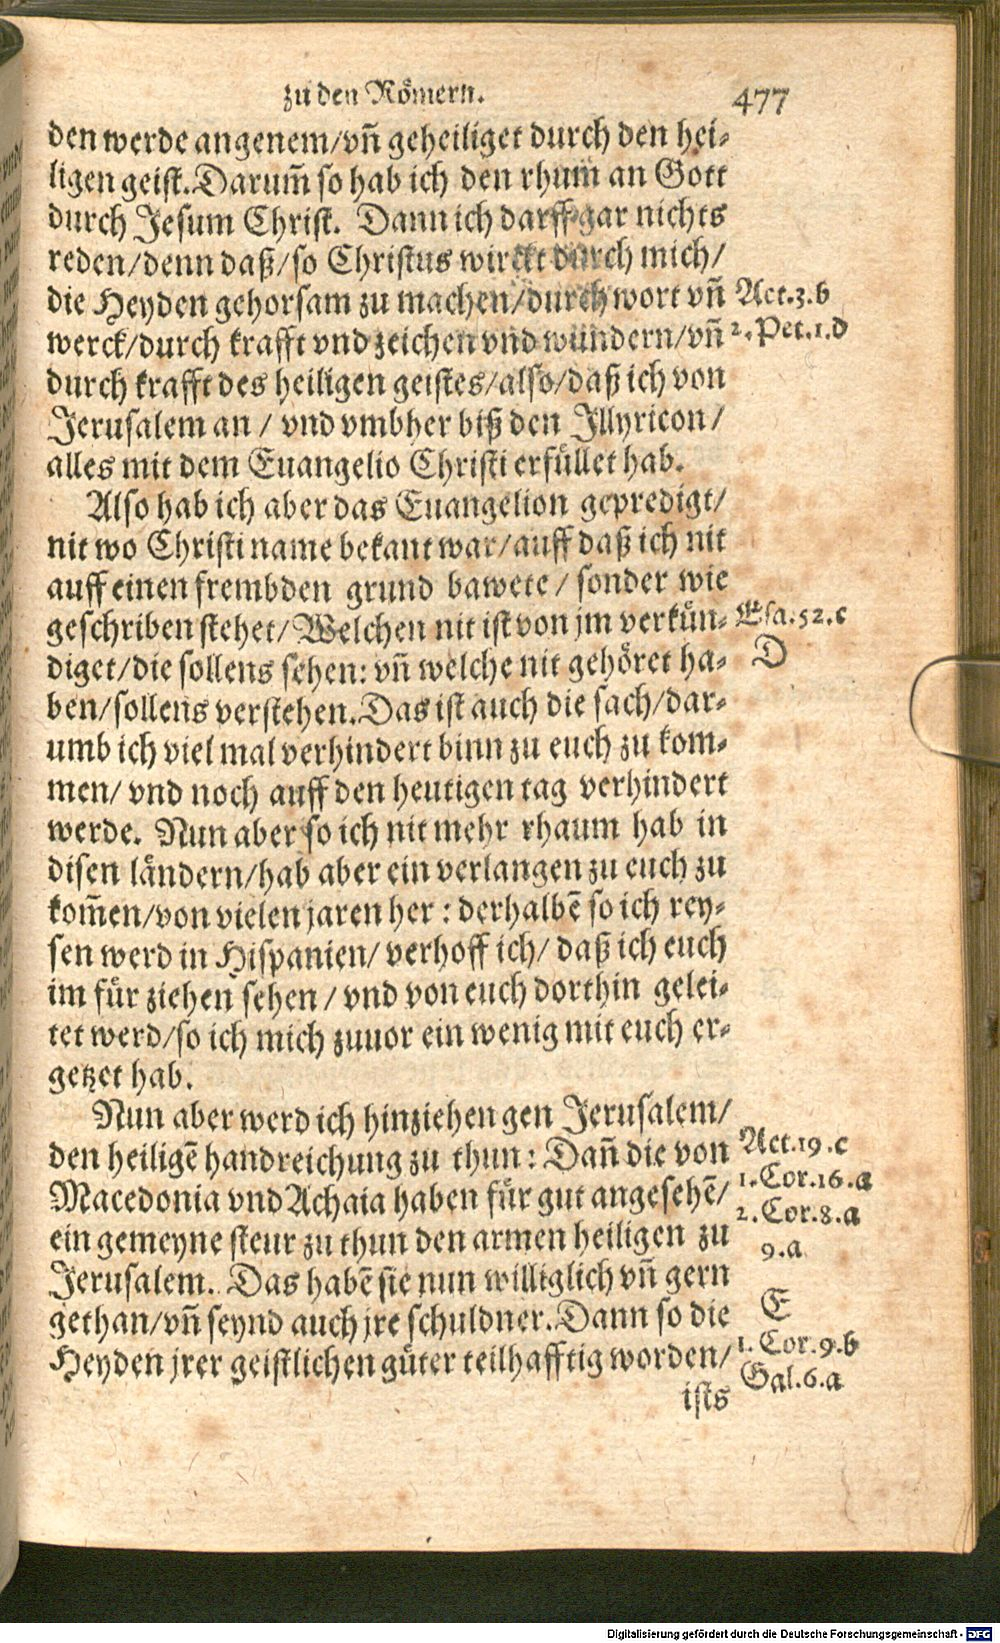 zu den Römern. 477
den werde angenem/vn̄ geheiliget durch den hei-
ligen geist. Darum̄ so hab ich den rhum an Gott
durch Jesum Christ. Dann ich darff gar nichts
reden/denn daß/so Christus wirckt durch mich/
die Heyden gehorsam zu machen/durch wort vn̄ Act.3.b
werck/durch krafft vnd zeichen vnd wundern/vn̄ 2.Pet.1.d
durch krafft des heiligen geistes/also/daß ich von
Jerusalem an / vnd vmbher biß den Illyricon/
alles mit dem Euangelio Christi erfüllet hab.
Also hab ich aber das Euangelion gepredigt/
nit wo Christi name bekant war/auff daß ich nit
auff einen frembden grund bawete / sonder wie
geschriben stehet/Welchen nit ist von jm verkün- Esa.52.c
diget/die sollens sehen: vn̄ welche nit gehöret ha- D
ben/sollens verstehen. Das ist auch die sach/dar-
umb ich viel mal verhindert binn zu euch zu kom-
men/ vnd noch auff den heutigen tag verhindert
werde. Nun aber so ich nit mehr rhaum hab in
disen ländern/hab aber ein verlangen zu euch zu
kom̄en/von vielen jaren her : derhalbē so ich rey-
sen werd in Hispanien/ verhoff ich/ daß ich euch
im für ziehen sehen / vnd von euch dorthin gelei-
tet werd/so ich mich zuuor ein wenig mit euch er-
getzet hab.
Nun aber werd ich hinziehen gen Jerusalem/
den heiligē handreichung zu thun : Dan̄ die von Act.19.c
Macedonia vnd Achaia haben für gut angesehē/ 1.Cor.16.a
ein gemeyne steur zu thun den armen heiligen zu 2.Cor.8.a
Jerusalem. Das habē sie nun williglich vn̄ gern 9.a
gethan/vn̄ seynd auch jre schuldner. Dann so die E
Heyden jrer geistlichen güter teilhafftig worden/ 1.Cor.9.b
ists Gal.6.a
Digitalisierung gefördert durch die Deutsche Forschungsgemeinschaft - DFG